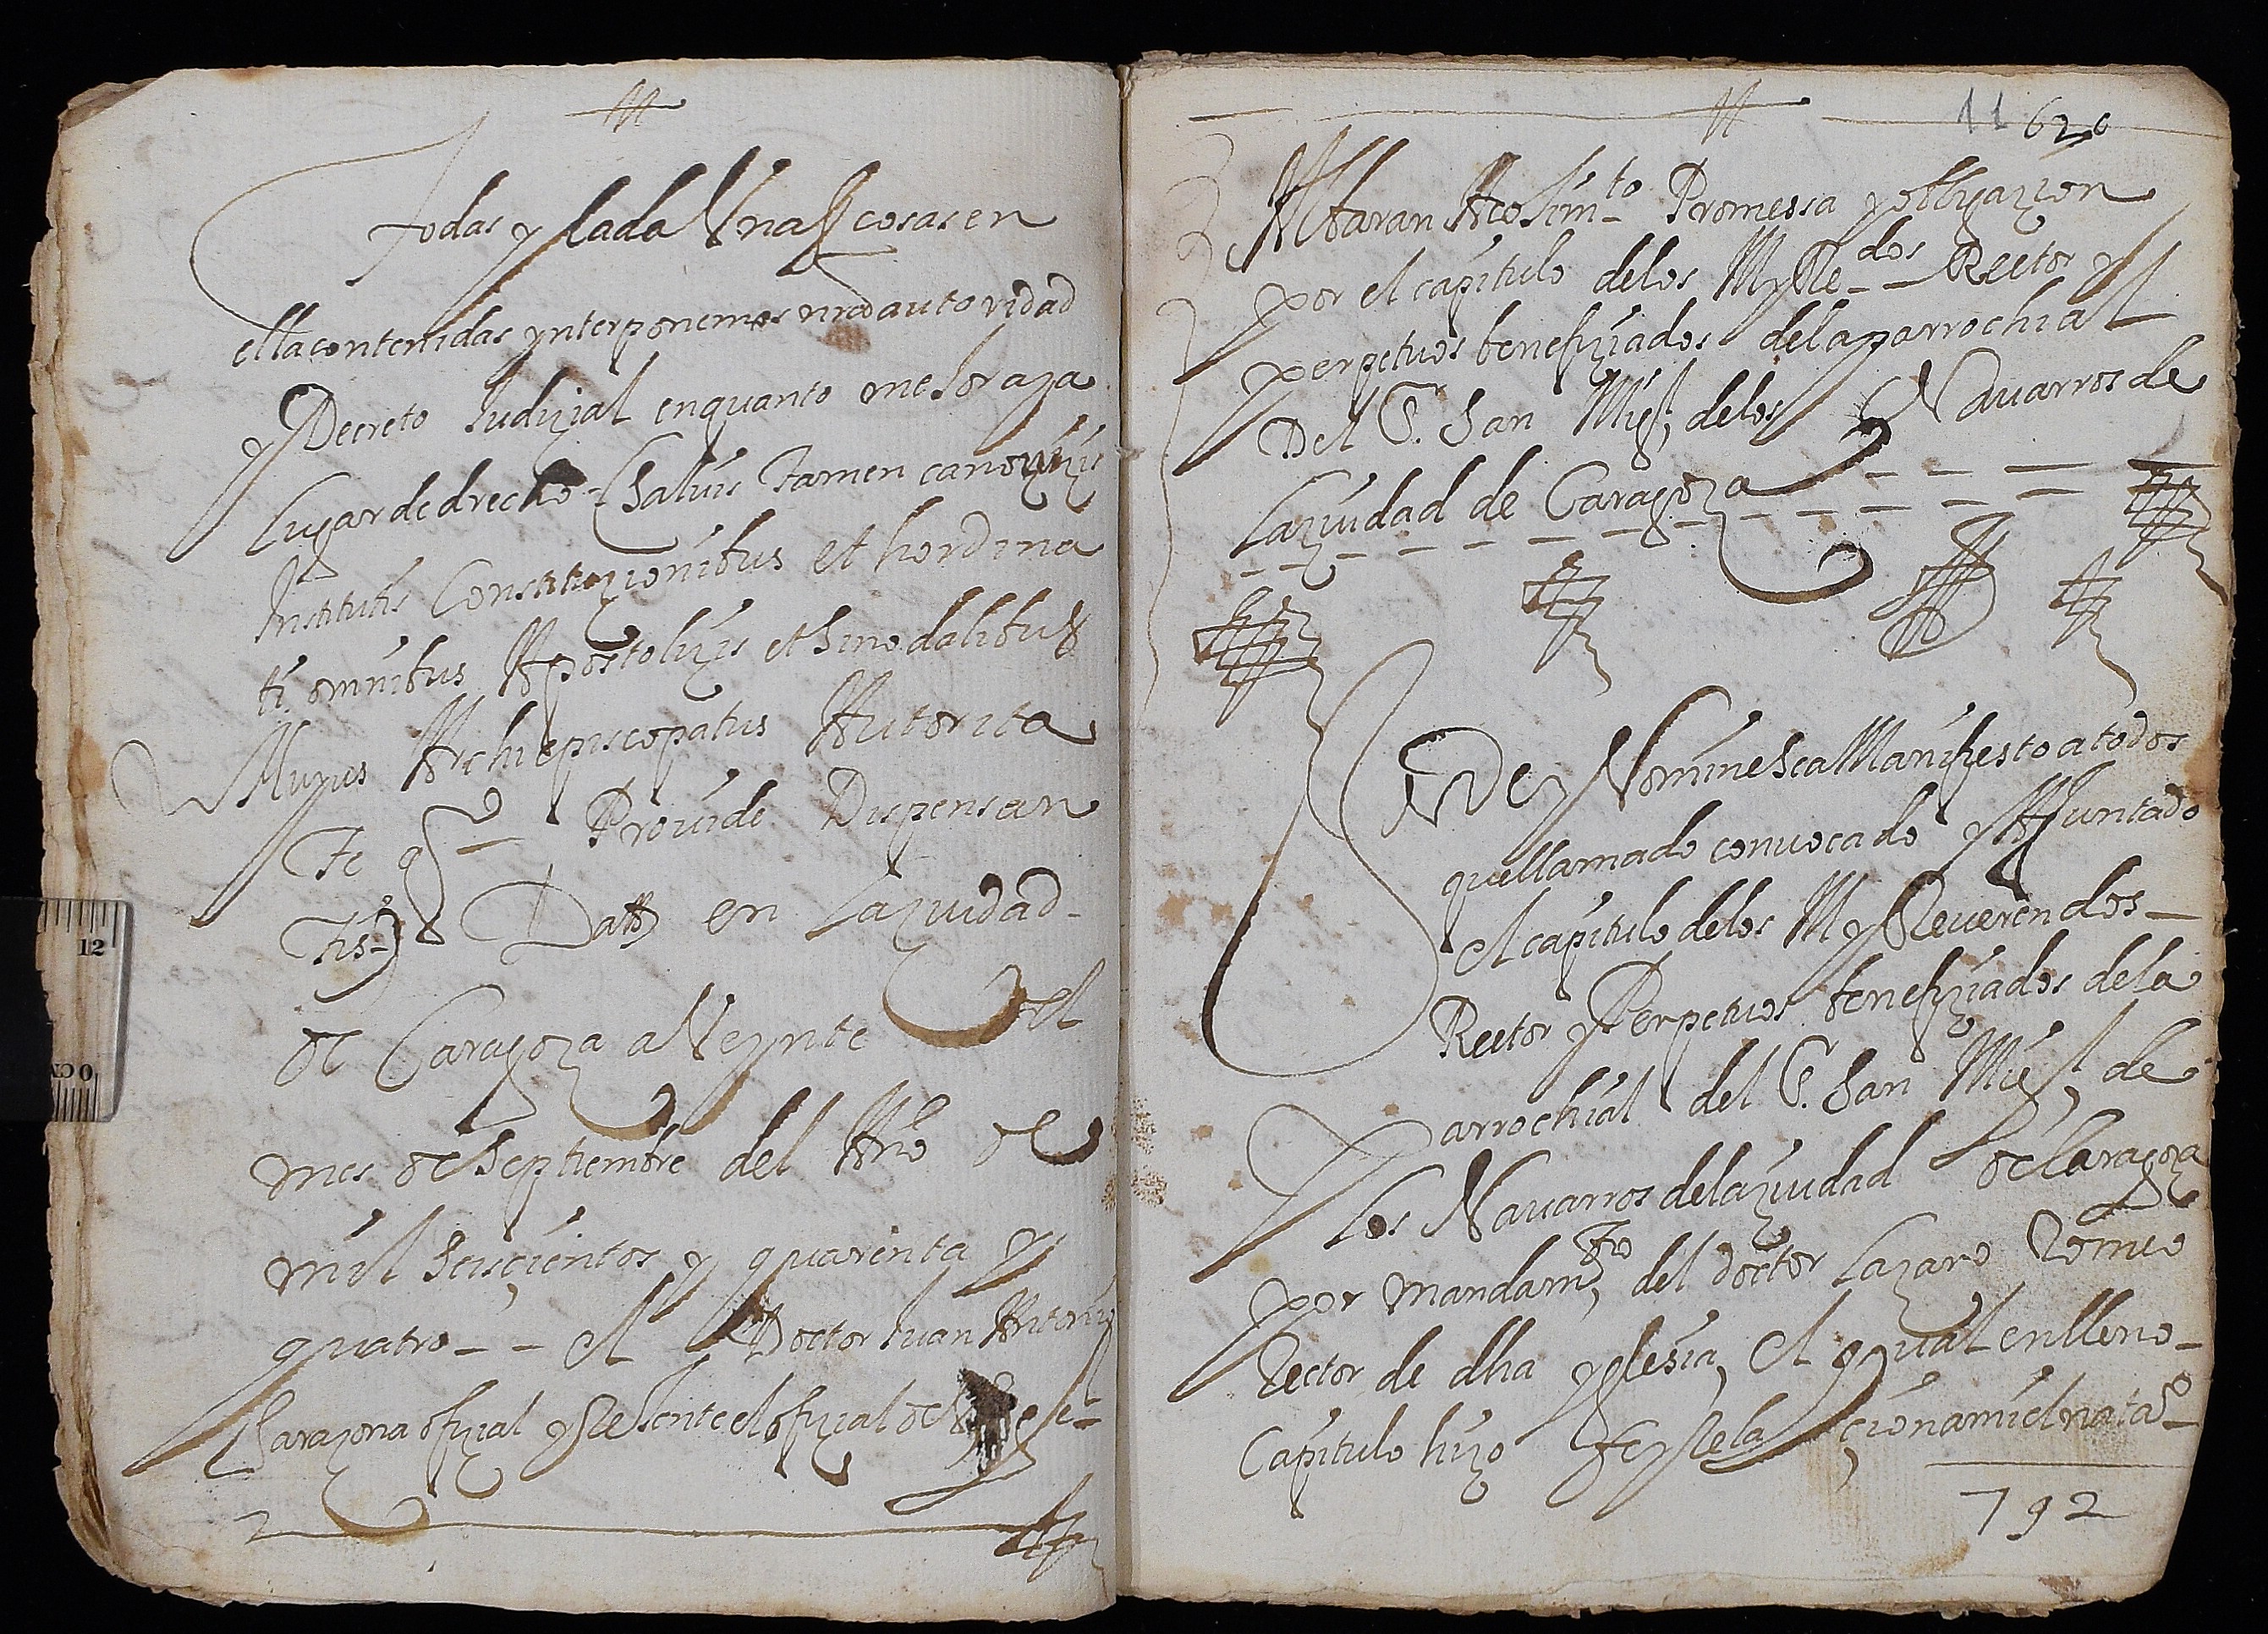 todas y cada Unas cosas en
ella contenidas ynterponemos nra autoridad
y Decreto Judizial enquanto
Lugar de drecho Salvis tamen canonizis
Institutis Constituzionibus et hordina
ti omnibus Apostolizis et Sinodalibus
Huyus Archiepiscopatus Autorita
te Provide Dispensan
tis Datt en La ziudad
de Caragoza a Veynte del
mes de Septiembre del Año de
mil Seiscientos y quarenta y
quatro - - el Doctor Juan Antonio
Sarazona ofizial y Rexente el ofizial
11 620
Altaran Acolim.to Promessa y obligazion
por el capitulo de los M y Re.dos Rector y
perpetuos benefiziados de la parrochial
Del S. San Migl, de los Navarros de
La ziudad de Caragoza
Dey Nomine Sea Manifiesto a todos
que llamado convocado y Ajuntado
el capitulo de los M y Reverendos
Rector y Perpetuos benefiziados de la
Parrochial del S. San Migl, de
los Navarros de la ziudad de Caragoza
por mandam.to del doctor Lazaro Romeo
Rector de dha yglesia, el qual enlleno
Capitulo hizo fe y Relacion a mi el nota.o
792